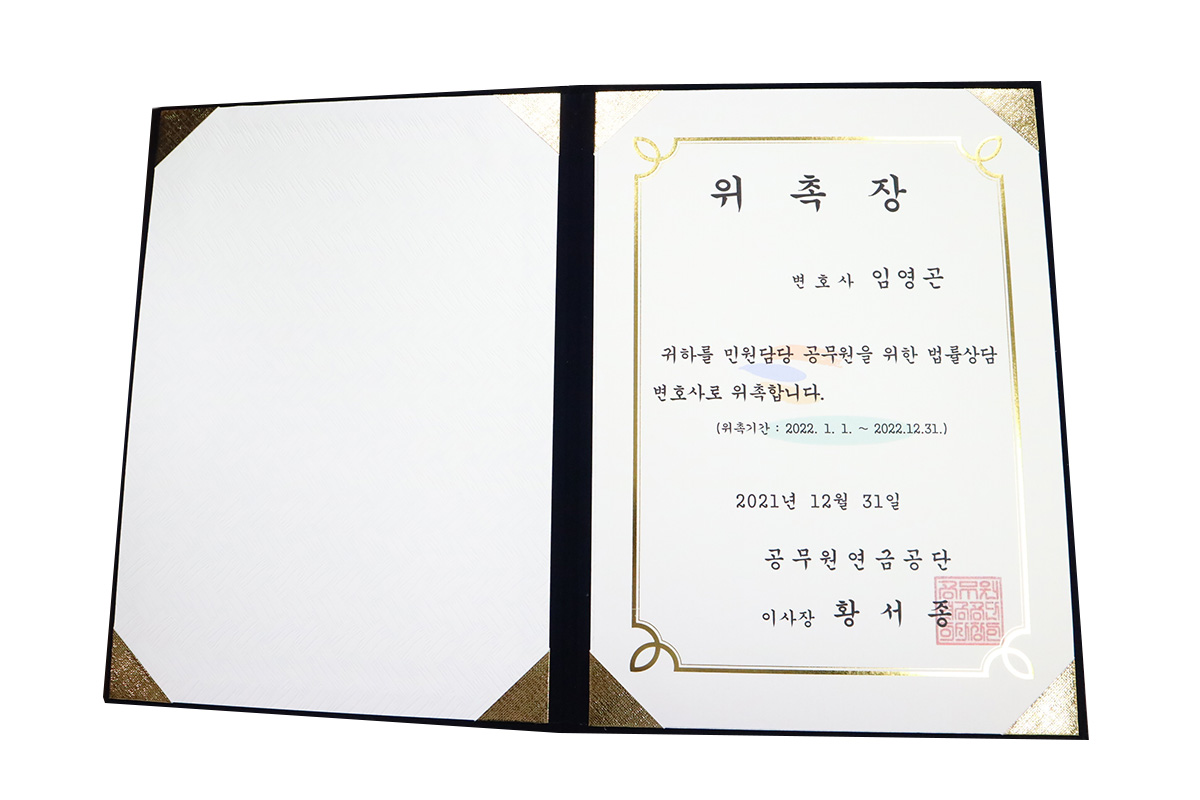 위 촉 장
변 호 사 임영곤
귀하를 민원담당 공무원을 위한 법률상담
변호사로 위촉합니다.
(위촉기간 : 2022. 1. 1. ~ 2022.12.31.)
2021년 12월 31일
공무원연금공단
이사장 황 서 종